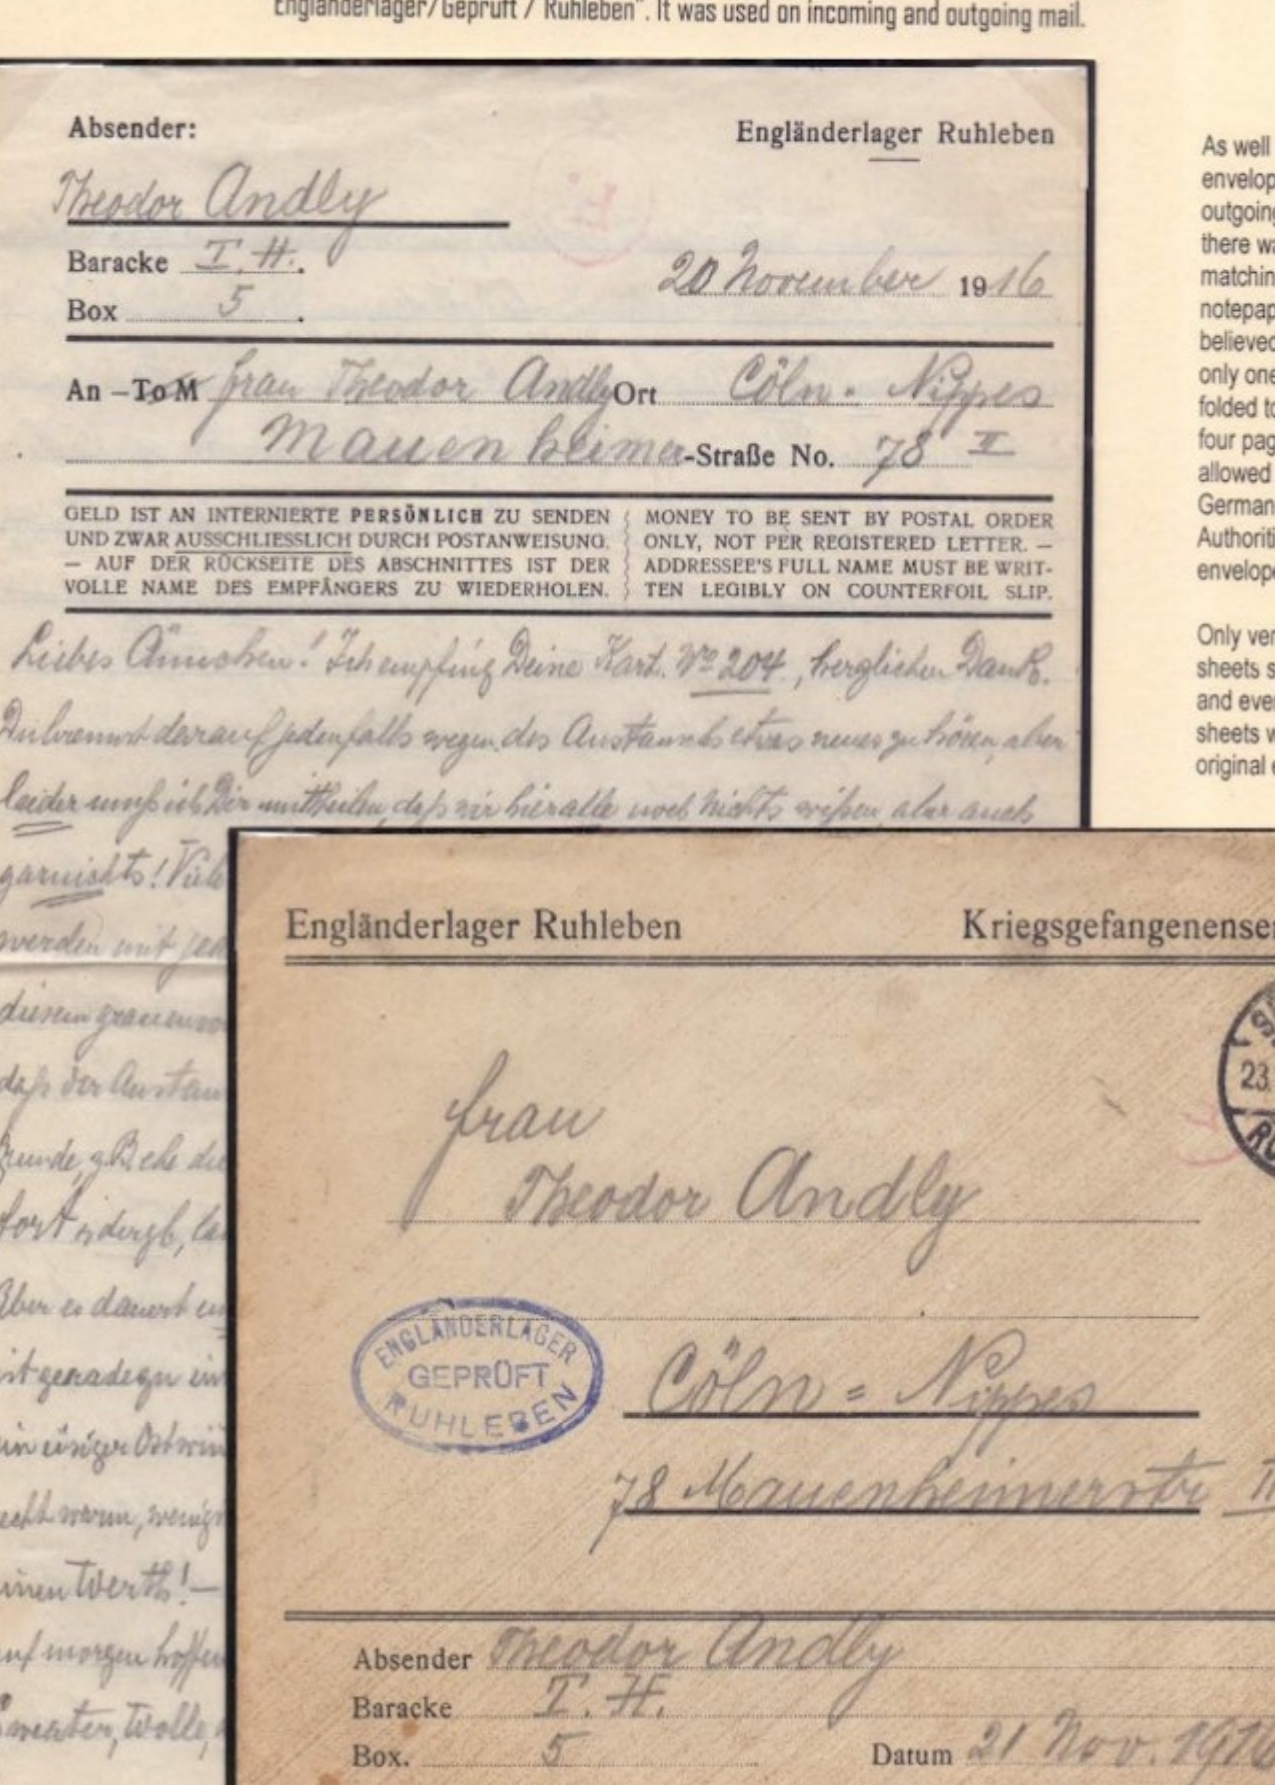 Engländerlager/Geprüft / Ruhleben". It was used on incoming and outgoing mail.
Absender:
Engländerlager Ruhleben
Theodor Andly
Baracke T. H.
Box 5
20 November 1916
An – To M Frau Theodor Andly Ort Cöln - Nippes
Mauenheimer-Straße No. 78 II
GELD IST AN INTERNIERTE PERSÖNLICH ZU SENDEN
UND ZWAR AUSSCHLIESSLICH DURCH POSTANWEISUNG.
— AUF DER RÜCKSEITE DES ABSCHNITTES IST DER
VOLLE NAME DES EMPFÄNGERS ZU WIEDERHOLEN.
MONEY TO BE SENT BY POSTAL ORDER
ONLY, NOT PER REGISTERED LETTER. —
ADDRESSEE'S FULL NAME MUST BE WRIT-
TEN LEGIBLY ON COUNTERFOIL SLIP.
Liebes Ännchen! Ich empfing Deine Kart. No 204, herzlichen Dank.
Du brennst darauf jedenfalls wegen des Austauschs etwas neues zu hören, aber
leider muß ich Dir mittheilen, daß wir hier alle noch nichts wißen, aber auch
garnichts! Viele
werden mit
diesem
daß der Austau
Grunde, z.B. ehe die
fort
Aber es dauert
ist geradezu ein
ein eisiger Ostwin
recht warm, wenigs
einen Werth! —
auf morgen hoffen
Sweater, Wolle,
Engländerlager Ruhleben
Kriegsgefangenense
Frau
Theodor Andly
ENGLÄNDERLAGER
GEPRÜFT
RUHLEBEN
Cöln = Nippes
78 Mauenheimerstr II
Absender Theodor Andly
Baracke T. H.
Box. 5
Datum 21 Nov. 1916
23.
As well
envelop
outgoing
there wa
matchin
notepap
believed
only one
folded to
four pag
allowed
German
Authoriti
envelope
Only ver
sheets s
and ever
sheets w
original e